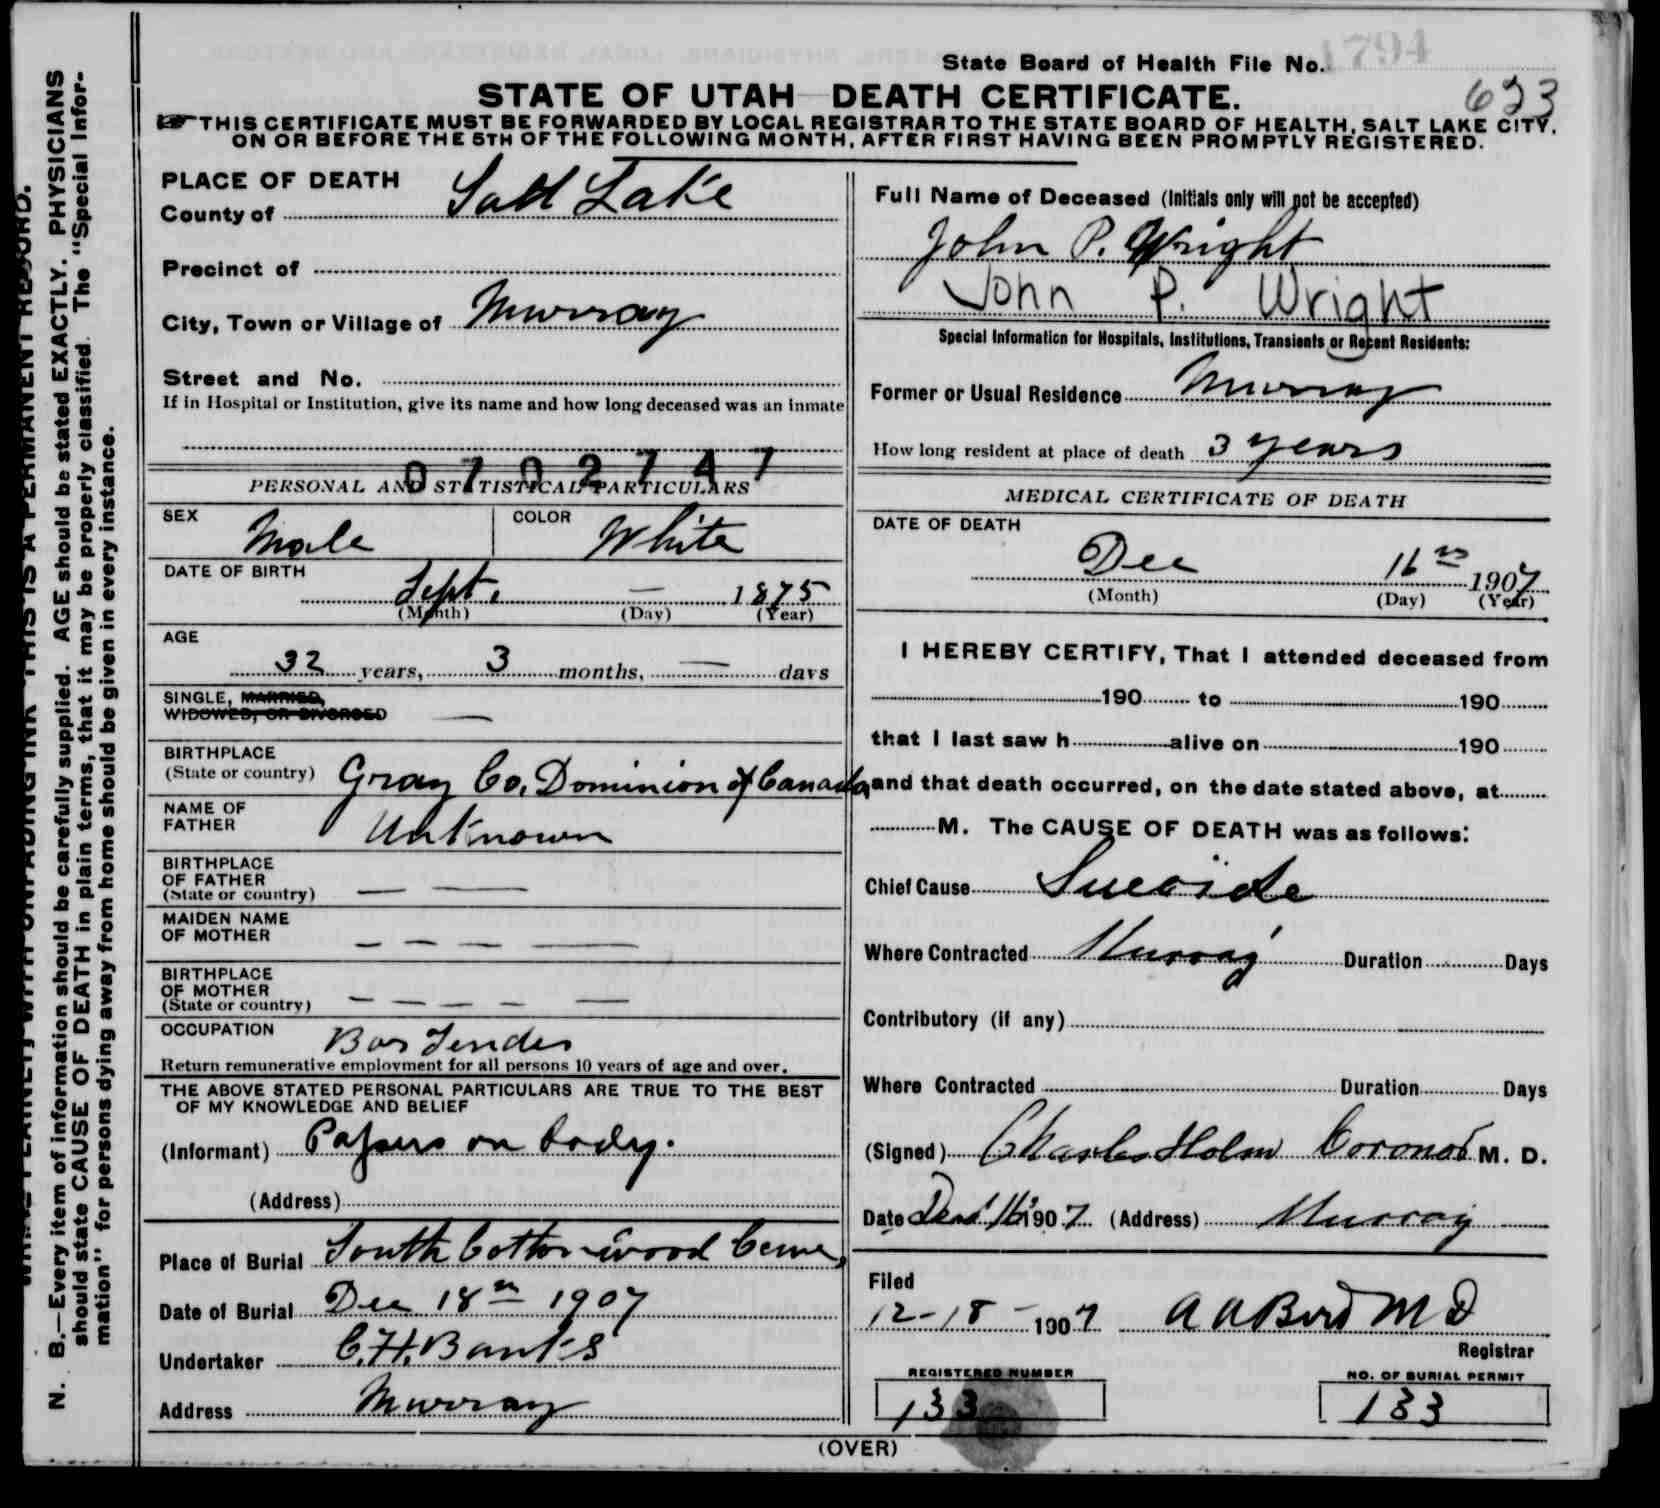 State Board of Health File No. 1794
623
STATE OF UTAH DEATH CERTIFICATE.
☞ THIS CERTIFICATE MUST BE FORWARDED BY LOCAL REGISTRAR TO THE STATE BOARD OF HEALTH, SALT LAKE CITY,
ON OR BEFORE THE 5TH OF THE FOLLOWING MONTH, AFTER FIRST HAVING BEEN PROMPTLY REGISTERED.
N. B.—Every item of information should be carefully supplied. AGE should be stated EXACTLY. PHYSICIANS
should state CAUSE OF DEATH in plain terms, that it may be properly classified. The "Special Infor-
mation" for persons dying away from home should be given in every instance.
PLACE OF DEATH
County of Salt Lake
Precinct of
City, Town or Village of Murray
Street and No.
If in Hospital or Institution, give its name and how long deceased was an inmate
0702747
PERSONAL AND STATISTICAL PARTICULARS
SEX Male COLOR White
DATE OF BIRTH
Sept. — 1875
(Month) (Day) (Year)
AGE
32 years, 3 months, — days
SINGLE, MARRIED,
WIDOWED, OR DIVORCED —
BIRTHPLACE
(State or country) Gray Co, Dominion of Canada
NAME OF
FATHER Unknown
BIRTHPLACE
OF FATHER
(State or country) — —
MAIDEN NAME
OF MOTHER — — — —
BIRTHPLACE
OF MOTHER
(State or country) — — — — —
OCCUPATION Bar Tender
Return remunerative employment for all persons 10 years of age and over.
THE ABOVE STATED PERSONAL PARTICULARS ARE TRUE TO THE BEST
OF MY KNOWLEDGE AND BELIEF
(Informant) Papers on body.
(Address)
Place of Burial South Cottonwood Ceme,
Date of Burial Dec 18th 1907
Undertaker C. H. Banks
Address Murray
Full Name of Deceased (Initials only will not be accepted)
John P. Wright
John P. Wright
Special Information for Hospitals, Institutions, Transients or Recent Residents:
Former or Usual Residence Murray
How long resident at place of death 3 years
MEDICAL CERTIFICATE OF DEATH
DATE OF DEATH
Dec 16th 1907
(Month) (Day) (Year)
I HEREBY CERTIFY, That I attended deceased from
190 to 190
that I last saw h alive on 190
and that death occurred, on the date stated above, at
M. The CAUSE OF DEATH was as follows:
Chief Cause Sucoide
Where Contracted Murray Duration Days
Contributory (if any)
Where Contracted Duration Days
(Signed) Charles Holm Coronor M. D.
Date Dec 16 1907 (Address) Murray
Filed
12-18-1907 A A Bird M D
Registrar
REGISTERED NUMBER
133
NO. OF BURIAL PERMIT
133
(OVER)